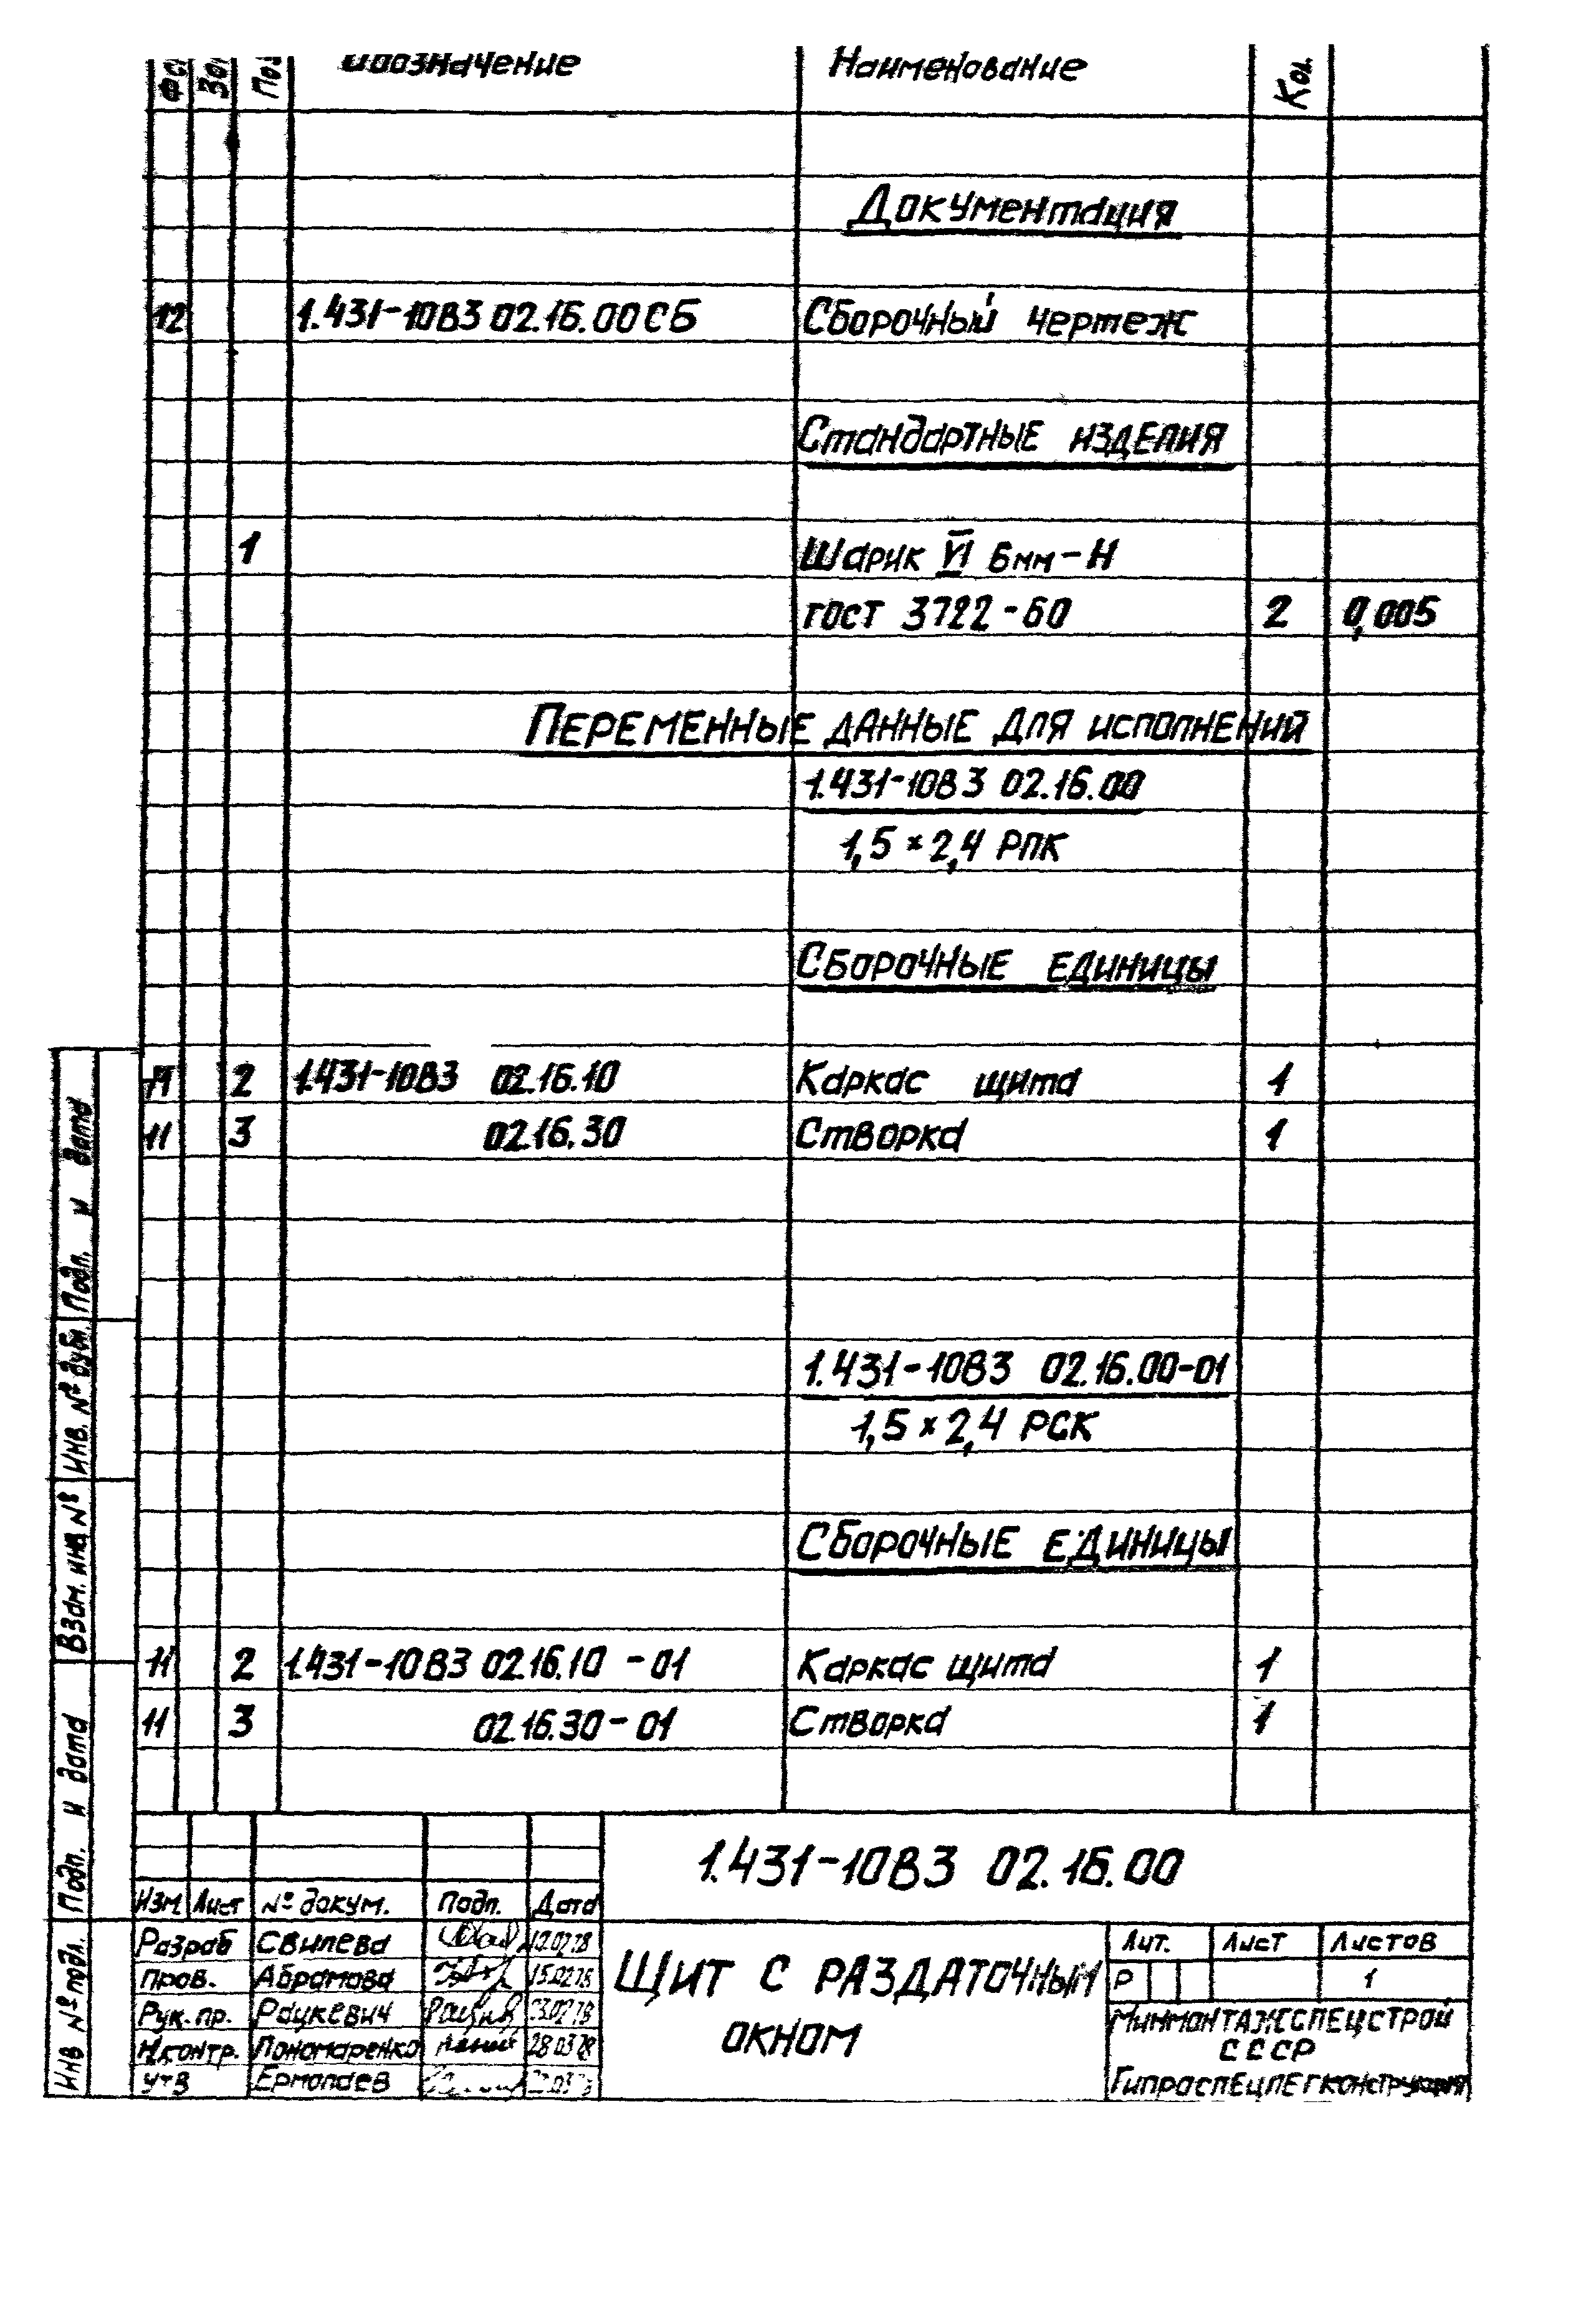 Обозначение Наименование Кол.
Документация
12 1.431-10В3 02.16.00СБ Сборочный чертеж
Стандартные изделия
1 Шарик VI 6мм-Н
гост 3722-60 2 0,005
Переменные данные для исполнений
1.431-10В3 02.16.00
1,5×2,4 РПК
Сборочные единицы
2 1.431-10В3 02.16.10 Каркас щита 1
11 3 02.16.30 Створка 1
1.431-10В3 02.16.00-01
1,5×2,4 РСК
Сборочные единицы
11 2 1.431-10В3 02.16.10-01 Каркас щита 1
11 3 02.16.30-01 Створка 1
Подп. и дата
Инв. № дубл.
Взам. инв №
Подп. и дата
Инв № подл.
1.431-10В3 02.16.00
Изм. Лист № докум. Подп. Дата
Разраб Свилева
Пров. Абрамова
Рук. пр. Рацкевич
Н.контр. Пономаренко 28.03.78
Утв Ермолаев
Щит с раздаточным
окном
Лит. Лист Листов
Р 1
Минмонтажспецстрой
СССР
Гипроспецлегконструкция